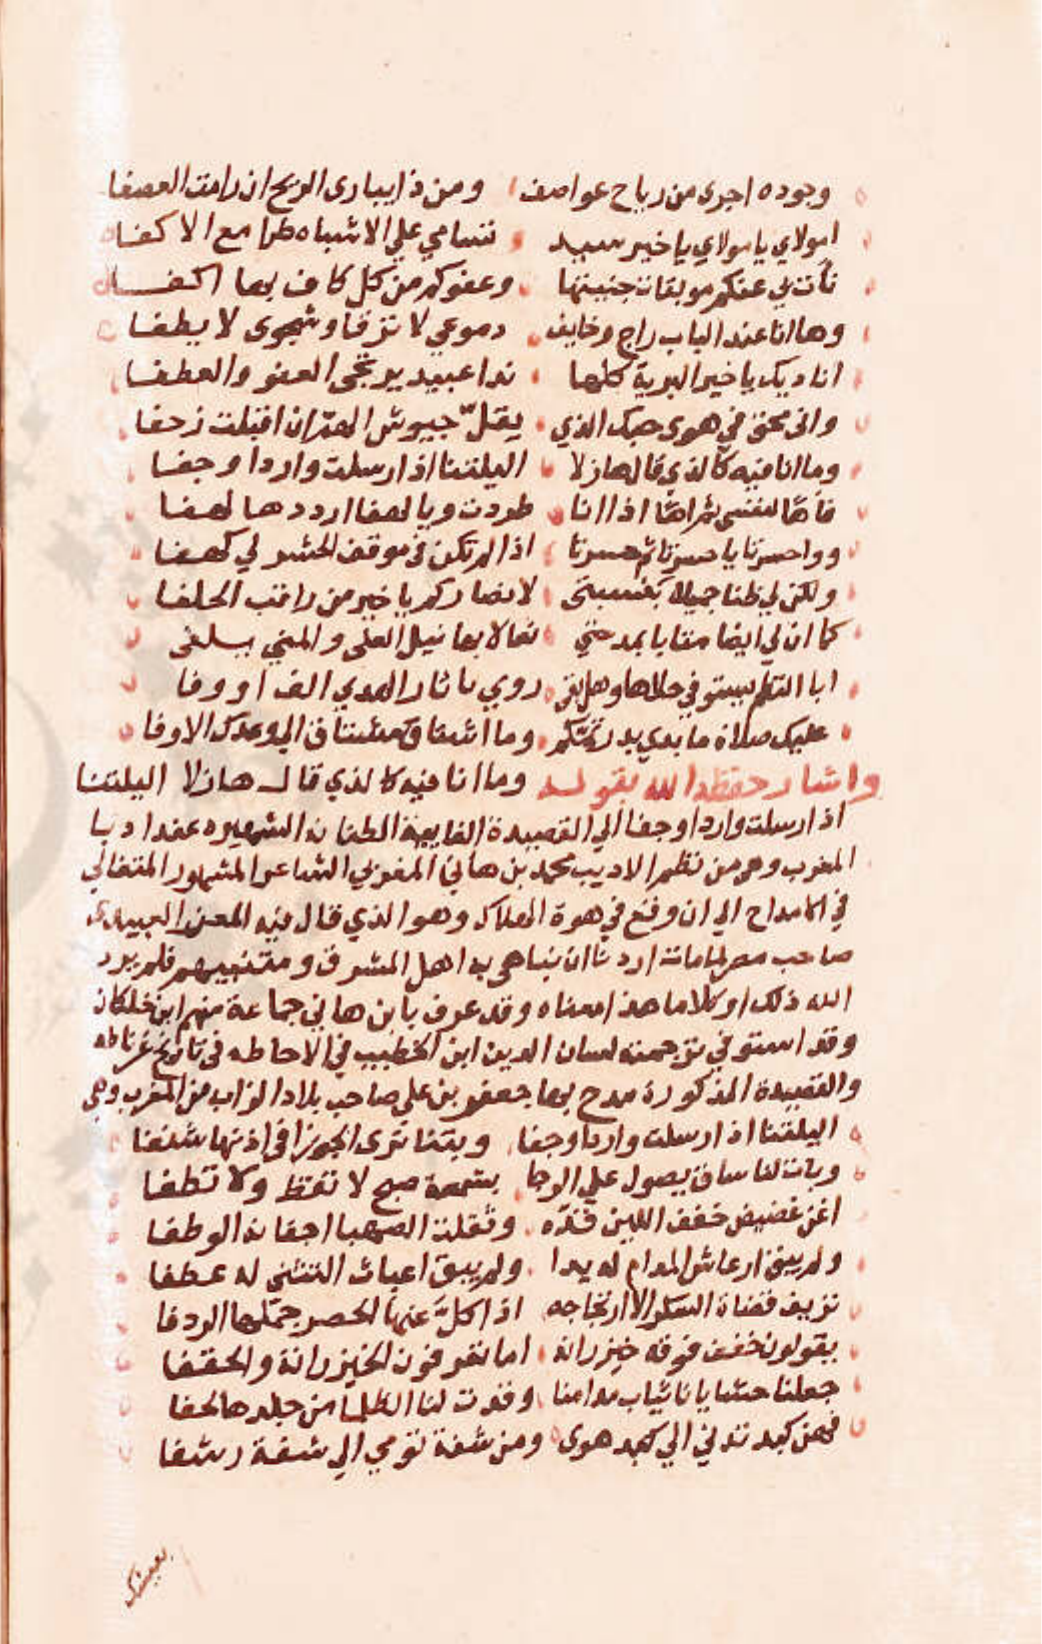 وجوده اجرى من رياح عواصف ومن ذا يبارى الريح ان رامت العصفا
امولاي يا مولاي يا خير سيد تسامي علي الاشباه طرا مع الاكفا
نأت بي عنكم موبقات جنيتها وعفوكم من كل كاف بها اكفا
وها انا عند الباب راج وخايف دموعي لا ترقا وشجوى لا يطفا
اناديك يا خير البرية كلها ندا عبيد يرتجى العفو والعطفا
وانى محق في هوى حبك الذي يقلّ جيوش الهم ان اقبلت زحفا
وما انا فيه كالذي قال هازلا اليلتنا اذ ارسلت واردا وجفا
فآها لنفسى ثم آها اذا انا طردت ويا لهفا ارددها لهفا
وواحسرتا يا حسرتا ثم حسرتا اذا لم تكن فى موقف الحشر لي كهفا
ولكن لي ظنا جميلا بنسبتى لانصاركم يا خير من راقب الحلفا
كما ان لي ايضا متابا بمدحتي نعالا بها نيل العلى والمني يلفى
ابا القاسم روي با ثار الهدي الف او وفا
عليك صلاة ما بدي بدر تمكم وما اشتاق مشتاق الي وعدك الاوفا
واشار حفظه الله بقوله وما انا فيه كالذي قال هازلا اليلتنا
اذ ارسلت واردا وجفا الي القصيدة الفايية الطنانه الشهيره عند ادبا
المغرب وهي من نظم الاديب محمد بن هاني المغربي الشاعر المشهور المتغالي
في الامداح الي ان وقع في هوة الهلاك وهو الذي قال فيه المعز العبيدي
صاحب مصر لما مات اردنا ان نباهى به اهل المشرق ومتنبيهم فلم يرد
الله ذلك او كلاما هذا معناه وقد عرف بابن هاني جماعة منهم ابن خلكان
وقد استوفي ترجمته لسان الدين ابن الخطيب في الاحاطه فى تاريخ غرناطه
والقصيدة المذكورة مدح بها جعفر بن على صاحب بلاد الزاب من المغرب وهي
اليلتنا اذ ارسلت واردا وجفا وبتنا نرى الجوزا في اذنها شنفا
وبات لنا ساق يصول علي الدجا بشمعة صبح لا تقط ولا تطفا
اغن غضيض خفف اللين قدّه وثقلت الصهبا اجفانه الوطفا
ولم يبق ارعاش المدام له يدا ولم يبق اعيات التثنى له عطفا
نزيف قضاه السكر الا ارتجاجه اذا كلّ عنها الخصر حملها الردفا
يقولون حقف فوقه خيزرانة اما تعرفون الخيزرانة والحقفا
جعلنا حشايانا ثياب مدامنا وقدت لنا الظلما من جلدها لحفا
فمن كبد تدني الي كبد هوى ومن شفة تومي الي شفة رشفا
بعيشك